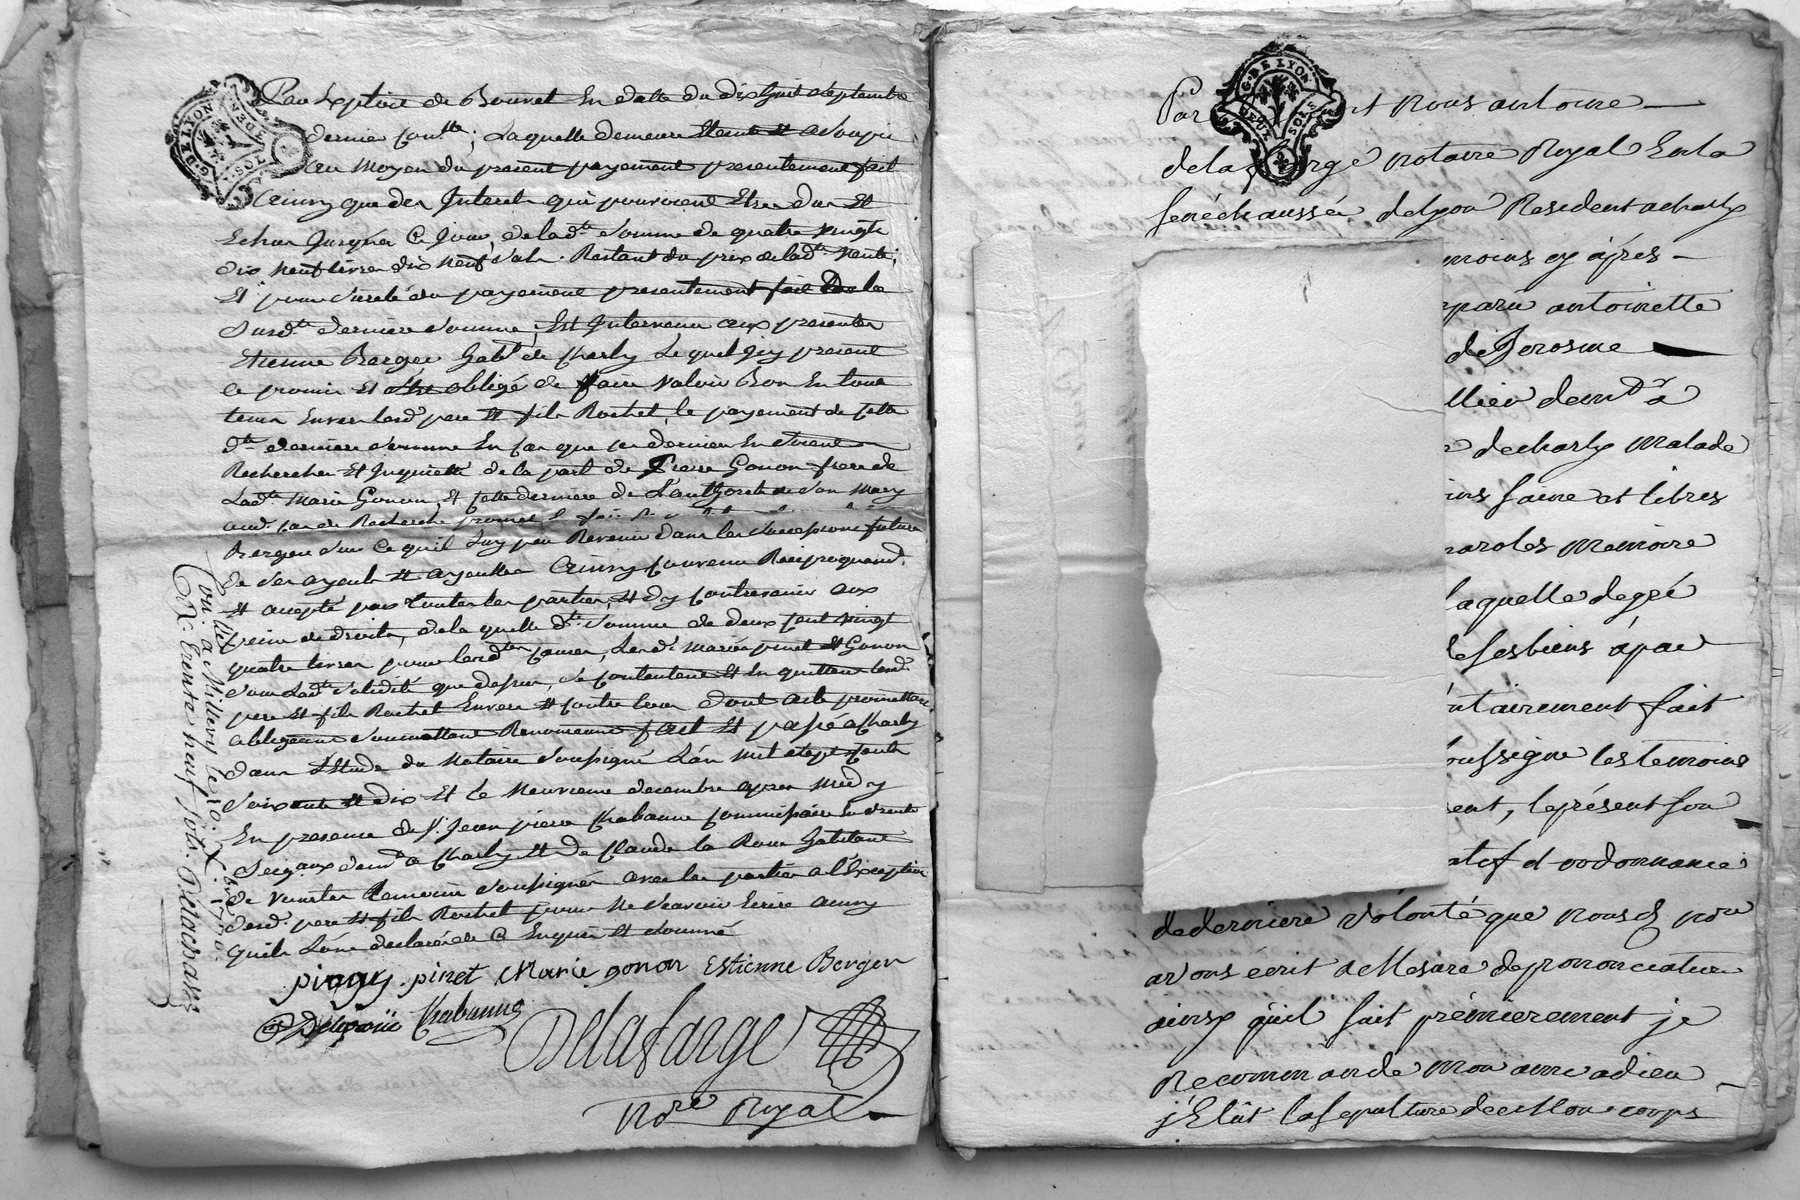 G. DE LYON
DEUX SOLS
Par Exploit de Bonnet En datte du dix huit septembre
dernier Contlé; Laquelle demeure Eteinte et assoupie
au moyen du present payement presentement fait
Ainsy que des Interets qui pourroient Etre dus Et
Echus Jusqu'a Ce Jour, de lade somme de quatre vingt
dix neuf livres dix neuf sols. Restant du prix de lade vente;
Et pour sureté du payement presentement fait De la
susde derniere somme, Est Intervenu aux presentes
Etienne Berger habt de Charly Lequel Icy present
a promis Et s'Est obligé de faire valoir Bon En tout
tems Envers lesd. pere et fils Rochet, le payement de cette
de derniere somme En Cas que ces derniers En soient
Recherchés Et Inquietés de la part de Pierre Gonon frere de
lade Marie Gonon, Et cette derniere de L'authorité de son mary
aud. cas de Recherche promet
Berger sur Ce qu'il luy peu Revenir dans les successions futures
de ses ayeuls et ayeulles Ainsy Convenu Reciproquemt.
Et accepté par toutes les parties, Et d'y Contrevenir aux
peine de droits, de la quelle de somme de deux Cent vingt
quatre livres pour lesdtes Causes, Lesd. mariés pinet Et Gonon
sous lade solidité que dessus, se Contentent Et En quittent lesd.
pere Et fils Rochet Envers Et Contre tous Dont acte promettant
obligeant soumettant Renonceant fait Et passé a Charly
dans l'Etude du Notaire soussigné L'an mil sept Cent
soixante et dix Et le Neuvieme decembre apres midy
En presence de sr. Jean pierre Chabanne Commissaire En droits
Seigaux demt a Charly Et de Claude la Roue habitant
de vourles temoins soussignés avec les parties a l'Exception
desd. pere Et fils Rochet pour Ne scavoir Ecrire ainsy
qu'ils L'ont declaré de Ce Enquis Et sommé
pinet Marie gonon Estienne Berger
Chabanne
Delafarge
Nore Royal
Con. a Millery le 10. Xbre 1770.
R. trente neuf sols. Delacras
G. DE LYON
DEUX SOLS
Par nt Nous antoine
de lafarge notaire Royal En la
senéchaussée de lyon Resident a charly
moins cy aprés
paru antoinette
de Jerosme
llier demt a
de charly malade
ins saine et libres
paroles memoire
laquelle de gré
ses biens á par
ntairement fait
oussigne les temoins
ent, le présent son
atif d ordonnance
de derniere volonté que nous d nore
avons écrit a Mesure de prononciation
ainsy qu'il suit prémierement je
Recommande mon ame a dieu
j'Elût la sepulture de Mon corps